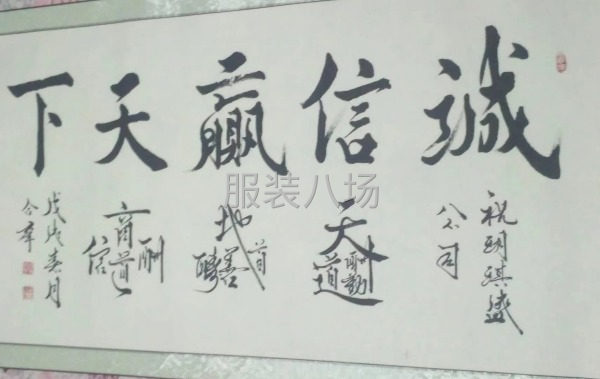 誠信贏天下
祝琪盛
公司
天道酬勤
地道酬善
商道酬信
戊戌春月
服装八场